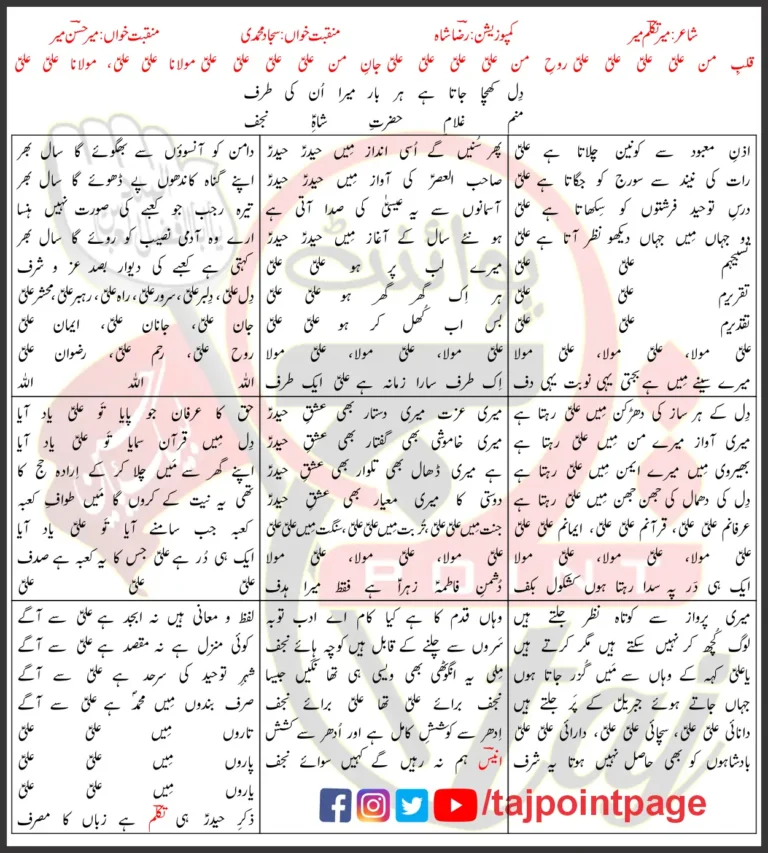 شاعر: میر تکلّم میر
کمپوزیشن: رضا شاہ
منقبت خواں: سجاد محمدی
منقبت خواں: میر حسن میر
قلبِ من علیؑ علیؑ علیؑ علیؑ روحِ من علیؑ علیؑ علیؑ علیؑ جانِ من علیؑ علیؑ علیؑ علیؑ مولانا علیؑ علیؑ، مولانا علیؑ علیؑ
دِل کھچا جاتا ہے ہر بار میرا اُن کی طرف
منم غلام حضرتِ شاہِ نجف
اذنِ معبود سے کونین چلاتا ہے علیؑ
رات کی نیند سے سورج کو جگاتا ہے علیؑ
درسِ توحید فرشتوں کو سِکھاتا ہے علیؑ
دو جہاں میں جہاں دیکھو نظر آتا ہے علیؑ
تسبیحم علیؑ علیؑ
تقریرم علیؑ علیؑ
تقدیرم علیؑ علیؑ
علیؑ مولا، علیؑ مولا، علیؑ مولا
میرے سینے مِیں ہے بجتی یہی نوبت یہی دف
پھر سُنیں گے اُسی انداز مِیں حیدرؑ حیدرؑ
صاحب العصرؑ کی آواز مِیں حیدرؑ حیدرؑ
آسمانوں سے یہ عیسیٰؑ کی صدا آتی ہے
ہو نئے سال کے آغاز مِیں حیدرؑ حیدرؑ
میرے لب پر ہو علیؑ علیؑ
ہر اِک گھر گھر ہو علیؑ علیؑ
بس اب کُھل کر ہو علیؑ علیؑ
علیؑ مولا، علیؑ مولا، علیؑ مولا
اِک طرف سارا زمانہ ہے علیؑ ایک طرف
دامن کو آنسوؤں سے بھگوئے گا سال بھر
اپنے گناہ کاندھوں پے ڈھوئے گا سال بھر
تیرہ رجب جو کعبے کی صورت نہیں ہنسا
ارے وہ آدمی نصیب کو روئے گا سال بھر
کہتی ہے کعبے کی دیوار بصد عز و شرف
دِل علیؑ، دِلبر علیؑ، سرور علیؑ، راہ علیؑ، رہبر علیؑ، محشر علیؑ
جان علیؑ، جانان علیؑ، ایمان علیؑ
روح علیؑ، رحم علیؑ، رضوان علیؑ
اللہ اللہ اللہ
دِل کے ہر ساز کی دھڑکن مِیں علیؑ رہتا ہے
میری آواز میرے من مِیں علیؑ رہتا ہے
بھیروی مِیں میرے ایمن مِیں علیؑ رہتا ہے
دِل کی دھمال کی چھن چھن مِیں علیؑ رہتا ہے
عرفانم علیؑ علیؑ، قرآنم علیؑ علیؑ، ایمانم علیؑ علیؑ
علیؑ مولا، علیؑ مولا، علیؑ مولا
ایک ہی دَر پہ سدا رہتا ہوں کشکول بکف
میری عزت میری دستار بھی عشقِ حیدرؑ
میری خاموشی بھی گفتار بھی عشقِ حیدرؑ
ہے میری ڈھال بھی تلوار بھی عشقِ حیدرؑ
دوستی کا میری معیار بھی عشقِ حیدرؑ
جنت مِیں علیؑ علیؑ، تُربت مِیں علیؑ علیؑ، سنگت مِیں علیؑ علیؑ
علیؑ مولا، علیؑ مولا، علیؑ مولا
دُشمنِ فاطمہؑ زہراؑ ہے فقط میرا ہدف
حق کا عرفان جو پایا تَو علیؑ یاد آیا
دِل مِیں قرآن سمایا تَو علیؑ یاد آیا
اپنے گھر سے مَیں چلا کر کے اِرادہ حج کا
تھی یہ نیت کے کروں گا مَیں طوافِ کعبہ
کعبہ جب سامنے آیا تَو علیؑ یاد آیا
ایک ہی دُر ہے علیؑ جس کا یہ کعبہ ہے صدف
علیؑ علیؑ علیؑ
میری پرواز سے کوتاہ نظر جلتے ہیں
لوگ کُچھ کر نہیں سکتے ہیں مگر کرتے ہیں
یا علیؑ کہہ کے وہاں سے مَیں گُزر جاتا ہوں
جہاں جاتے ہوئے جبریلؑ کے پَر جلتے ہیں
دانائی علیؑ علیؑ، سچائی علیؑ علیؑ، دارائی علیؑ علیؑ
بادشاہوں کو بھی حاصل نہیں ہوتا یہ شرف
وہاں قدم کا ہے کیا کام اے ادب توبہ
سَروں سے چلنے کے قابل ہیں کوچہ ہائے نجف
مِلی یہ انگوٹھی بھی ویسی ہی تھا نگیں جیسا
نجف برائے علیؑ تھا علیؑ برائے نجف
اِدھر سے کوشش کامل ہے اور اُدھر سے کشش
انیسؔ ہم نہ رہیں گے کہیں سوائے نجف
لفظ و معانی ہیں نہ ابجد ہے علیؑ سے آگے
کوئی منزل ہے نہ مقصد ہے علیؑ سے آگے
شہرِ توحید کی سرحد ہے علیؑ سے آگے
صرف بندوں مِیں محمدؐ ہے علیؑ سے آگے
تاروں مِیں علیؑ علیؑ
پاروں مِیں علیؑ علیؑ
یاروں مِیں علیؑ علیؑ
ذکرِ حیدرؑ ہی تکلّمؔ ہے زباں کا مصرف
پوائنٹ
POINT
taj
/tajpointpage